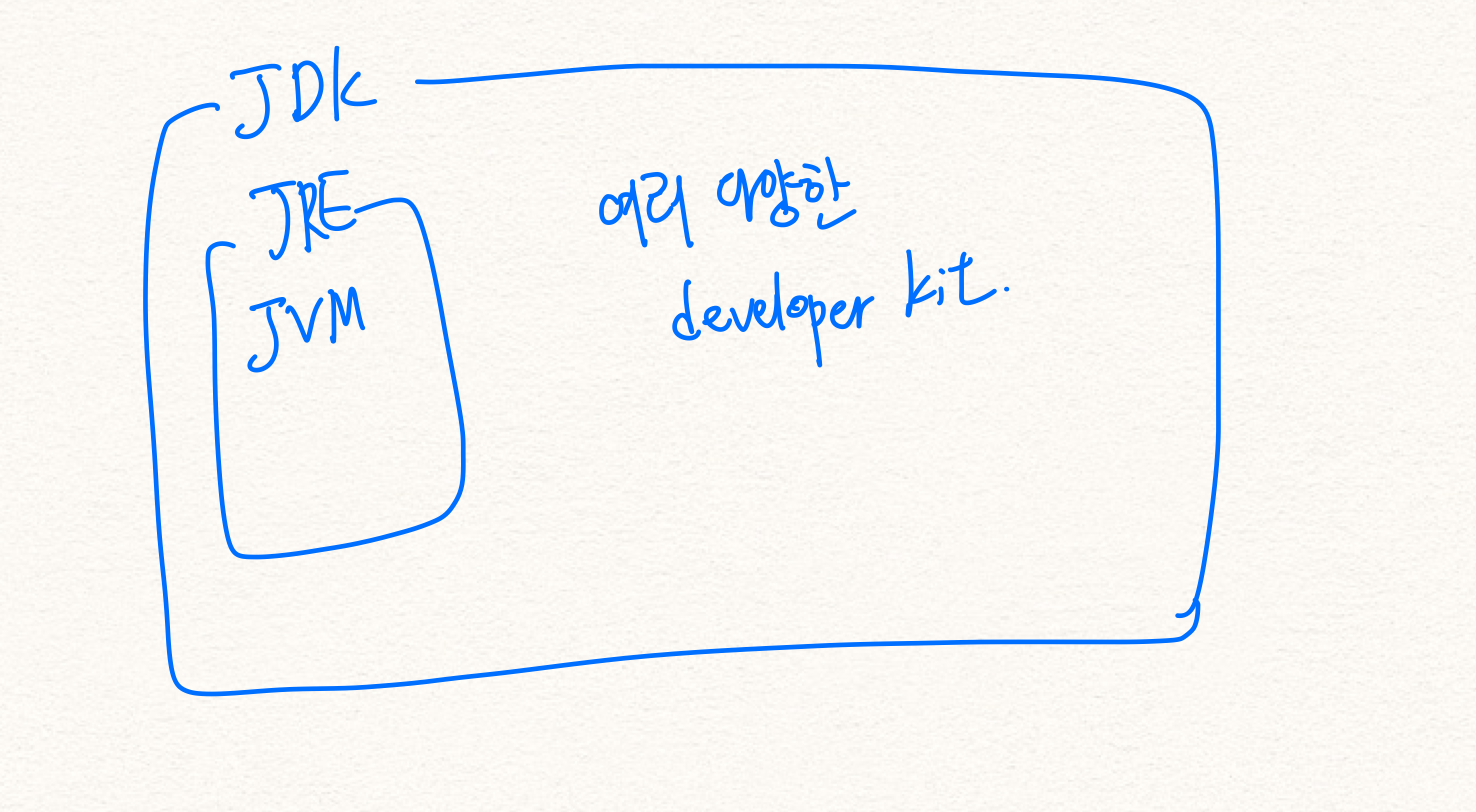 JDK
JRE
JVM
여러 다양한
developer kit.